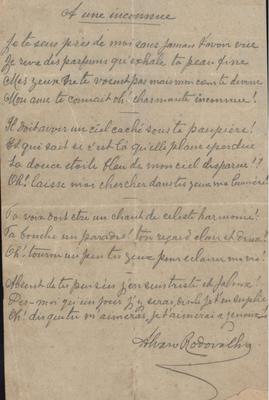 A une inconnue
Je te sens près de moi sans jamais t'avoir vue
Je rêve des parfums qu'exhale ta peau fine
Mes yeux ne te voient pas mais mon cœur te devine
Mon âme te connait oh! charmante inconnue!
Il doit avoir un ciel caché sous ta paupière!
Et qui sait si c'est là qu'elle plane éperdue
La douce étoile bleu de mon ciel disparue!?
Oh! laisse moi chercher dans tes yeux ma lumière!
Ta voix doit être un chant de celeste harmonie!
Ta bouche un paradis! ton regard clair et doux!
Oh! tourne un peu tes yeux pour éclairer ma vie!
Absent de tu pensée j'en suis triste et jaloux!
Dis-moi qu'un jour j'y serai, dis-le je t'en supplie
Oh! dis que tu m'aimeras, je t'aimerai a genoux!
Alvaro Rodovalho